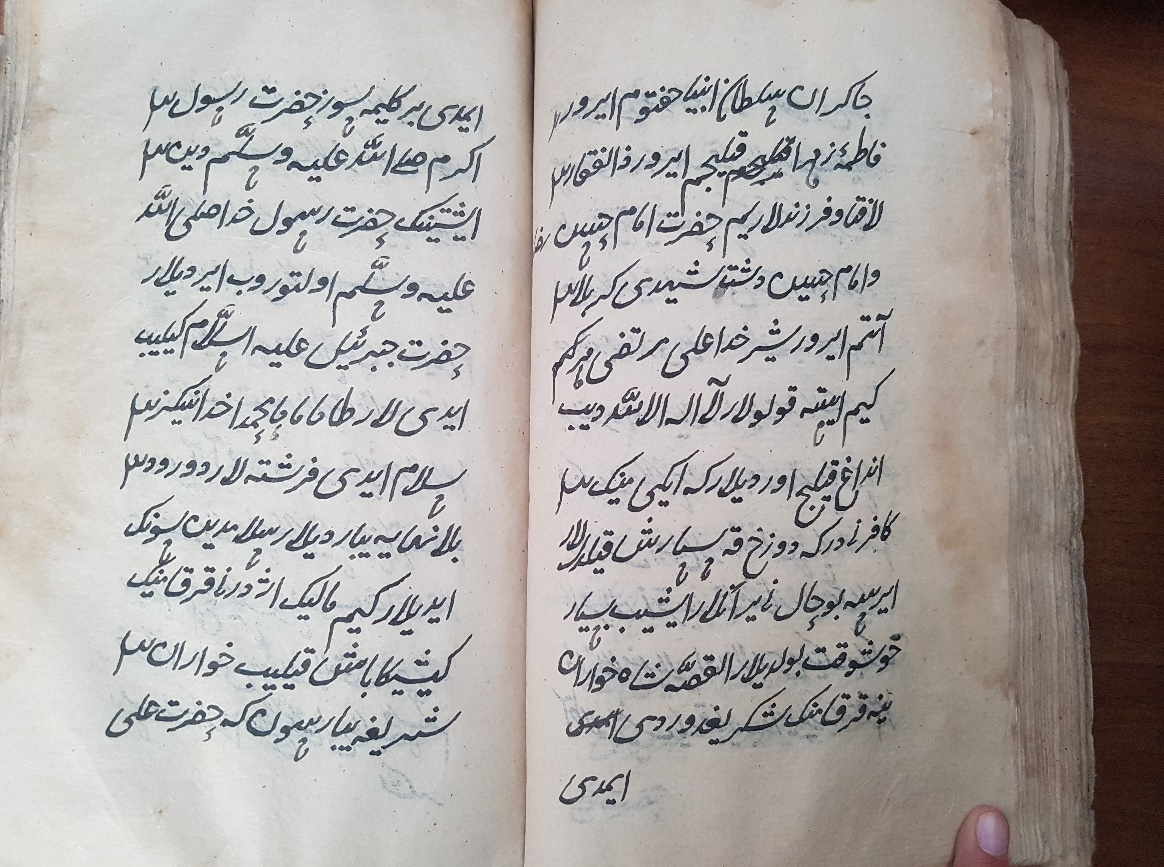 چاکران سلطان انبیا حفتوم ایرور
فاطمهٔ زهرا قیلیجیم ایرور ذالفقار
لافتا و فرزندلاریم حضرت امام حسن
و امام حسین دشت شهیدی کربلا
آتیم ایرور شیر خدا علی مرتضی هرکیم
کیم ایسه قولولار لآ اله الا الله دیب
انداغ قیلیچ اوردیلارکه ایکی مینک
کافر نادرکه دوزخ قه سپارش قیلدیلار
ایرسه بو حال نی آنلار ایشیب بسیار
خوشوقت بولدیلار القصّه شاه خواران
نینه قرق مینک لشکر یغه وردی ایمدی
ایمدی
ایمدی بر کلیمه سوز حضرت رسول
اکرم صلی الله علیه وسلّم دین
ایشیتینک حضرت رسول خدا صلی الله
علیه وسلّم اولتوروب ایردیلار
حضرت جبرئیل علیه السلام کیلیب
ایدی لار یا محمد خدانینکیز
سلام ایدی فرشته لار دورود
بلا نهایه یباردیلار سلامدین سونک
ایدیلار کیم مالیک اژدر نی قرق مینک
کیشیکا باش قیلیب خواران
شهریغه یبارسون که حضرت علی